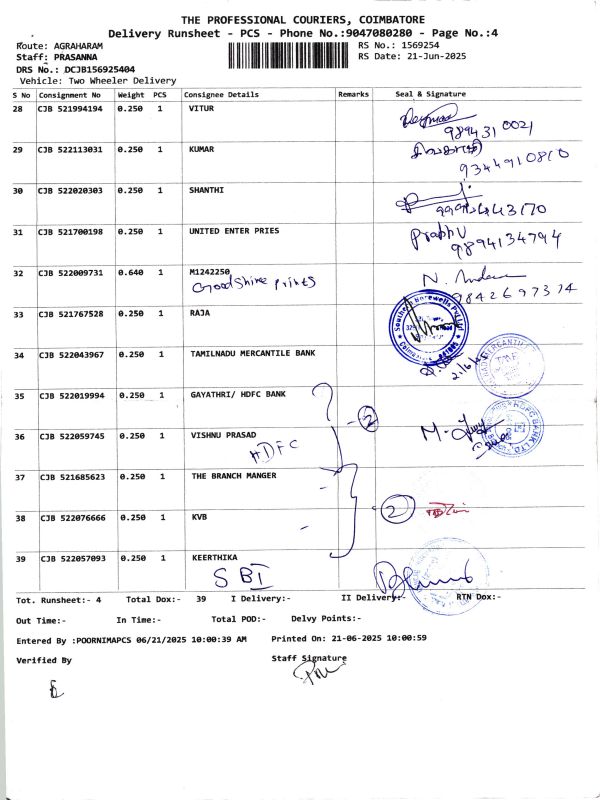 THE PROFESSIONAL COURIERS, COIMBATORE
Delivery Runsheet - PCS - Phone No.:9047080280 - Page No.:4
Route: AGRAHARAM RS No.: 1569254
Staff: PRASANNA RS Date: 21-Jun-2025
DRS No.: DCJB156925404
Vehicle: Two Wheeler Delivery
S No Consignment No Weight PCS Consignee Details Remarks Seal & Signature
28 CJB 521994194 0.250 1 VITUR
9894310021
29 CJB 522113031 0.250 1 KUMAR
9344910810
30 CJB 522020303 0.250 1 SHANTHI
31 CJB 521700198 0.250 1 UNITED ENTER PRIES Prabhu
9894134794
32 CJB 522009731 0.640 1 M1242250
GoodShine Prints N.
9842697374
33 CJB 521767528 0.250 1 RAJA
34 CJB 522043967 0.250 1 TAMILNADU MERCANTILE BANK
35 CJB 522019994 0.250 1 GAYATHRI/ HDFC BANK
2
36 CJB 522059745 0.250 1 VISHNU PRASAD
HDFC M.
37 CJB 521685623 0.250 1 THE BRANCH MANGER
2
38 CJB 522076666 0.250 1 KVB
39 CJB 522057093 0.250 1 KEERTHIKA
SBI
Tot. Runsheet:- 4 Total Dox:- 39 I Delivery:- II Delivery:- RTN Dox:-
Out Time:- In Time:- Total POD:- Delvy Points:-
Entered By :POORNIMAPCS 06/21/2025 10:00:39 AM Printed On: 21-06-2025 10:00:59
Verified By Staff Signature